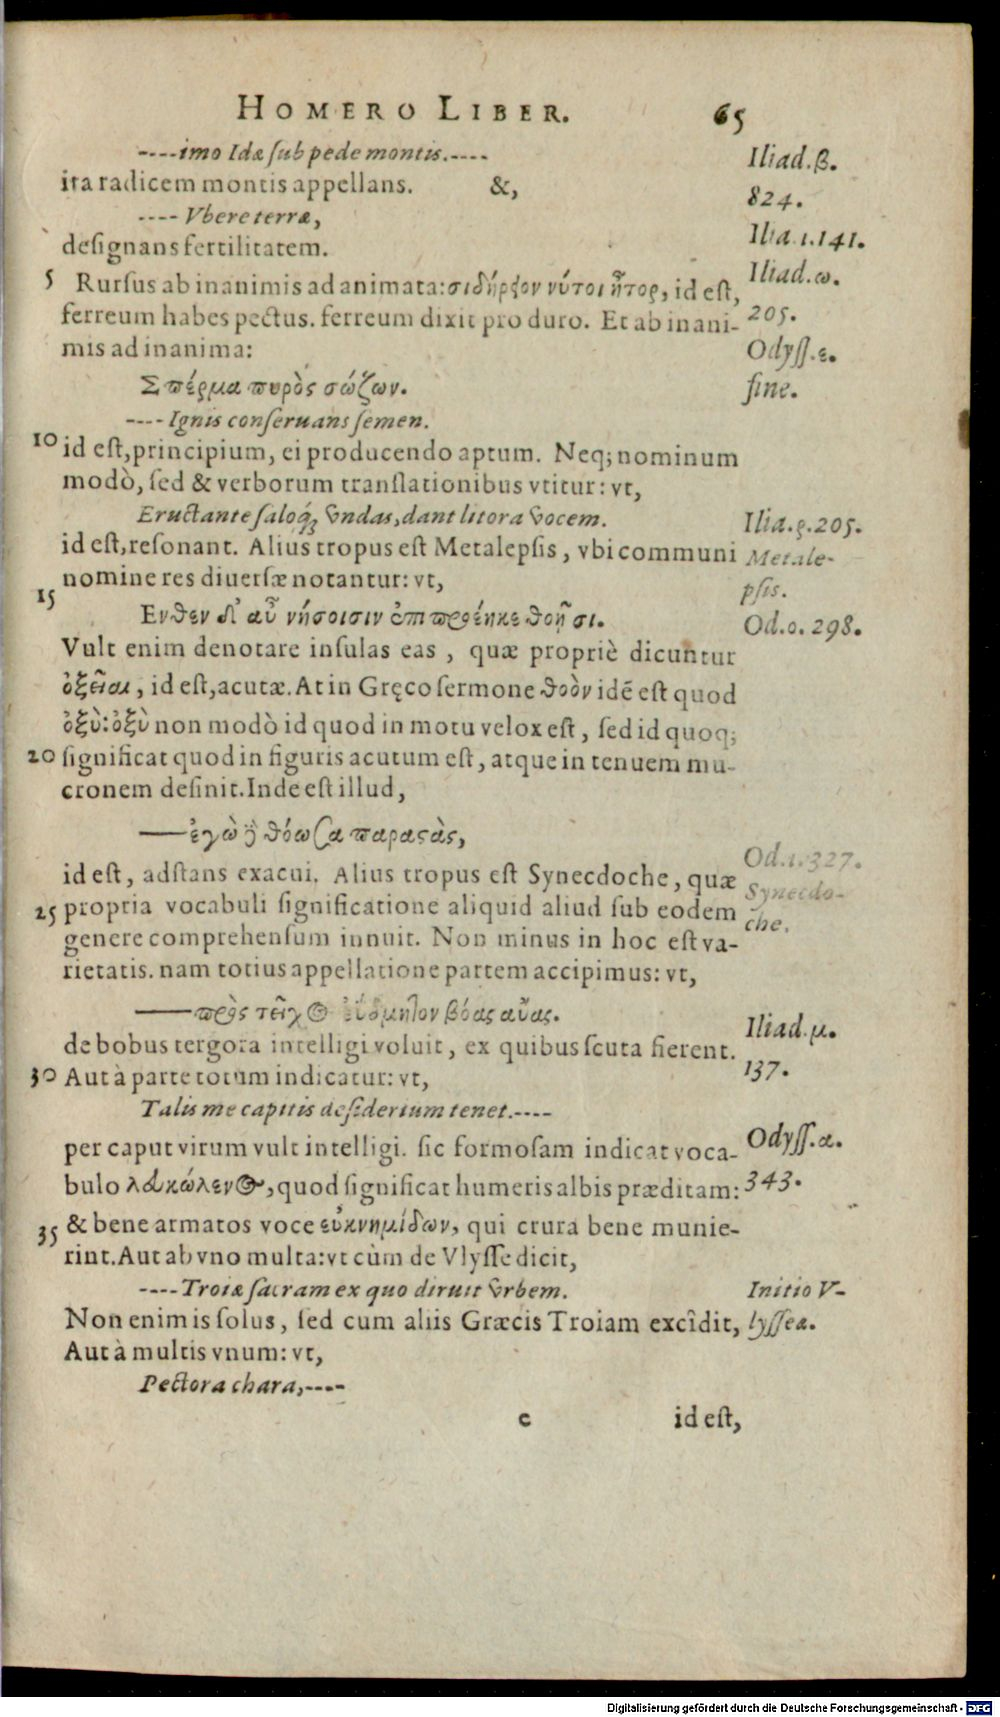 HOMERO LIBER. 65
----imo Idæ sub pede montis.----
ita radicem montis appellans. &,
---- Vbere terræ,
designans fertilitatem.
5 Rursus ab inanimis ad animata: σιδήρειον νύ τοι ἦτορ, id est,
ferreum habes pectus. ferreum dixit pro duro. Et ab inani-
mis ad inanima:
Σπέρμα πυρὸς σώζων.
---- Ignis conseruans semen.
10 id est, principium, ei producendo aptum. Neq; nominum
modò, sed & verborum translationibus vtitur: vt,
Eructante saloq; vndas, dant litora vocem.
id est, resonant. Alius tropus est Metalepsis, vbi communi
nomine res diuersæ notantur: vt,
15
Ενθεν δ' αὖ νήσοισιν ἐπιπροέηκε θοῇσι.
Vult enim denotare insulas eas, quæ propriè dicuntur
ὀξεῖαι, id est, acutæ. At in Gręco sermone θοὸν idē est quod
ὀξὺ: ὀξὺ non modò id quod in motu velox est, sed id quoq;
20 significat quod in figuris acutum est, atque in tenuem mu-
cronem desinit. Inde est illud,
——ἐγὼ δ' ἐθόωσα παραστὰς,
id est, adstans exacui. Alius tropus est Synecdoche, quæ
25 propria vocabuli significatione aliquid aliud sub eodem
genere comprehensum innuit. Non minus in hoc est va-
rietatis. nam totius appellatione partem accipimus: vt,
——πρὸς τεῖχος ἐΰδμητον βόας αὔας.
de bobus tergora intelligi voluit, ex quibus scuta fierent.
30 Aut à parte totum indicatur: vt,
Talis me capitis desiderium tenet.----
per caput virum vult intelligi. sic formosam indicat voca-
bulo λευκώλενος, quod significat humeris albis præditam:
35 & bene armatos voce εὐκνημίδων, qui crura bene munie-
rint. Aut ab vno multa: vt cùm de Vlysse dicit,
----Troiæ sacram ex quo diruit vrbem.
Non enim is solus, sed cum aliis Græcis Troiam excîdit,
Aut à multis vnum: vt,
Pectora chara,----
c id est,
Iliad.β.
824.
Ilia.ι.141.
Iliad.ω.
205.
Odyss.ε.
fine.
Ilia.ρ.205.
Metale-
psis.
Od.ο. 298.
Od.ι.327.
Synecdo-
che.
Iliad.μ.
137.
Odyss.α.
343.
Initio V-
lysseæ.
Digitalisierung gefördert durch die Deutsche Forschungsgemeinschaft - DFG